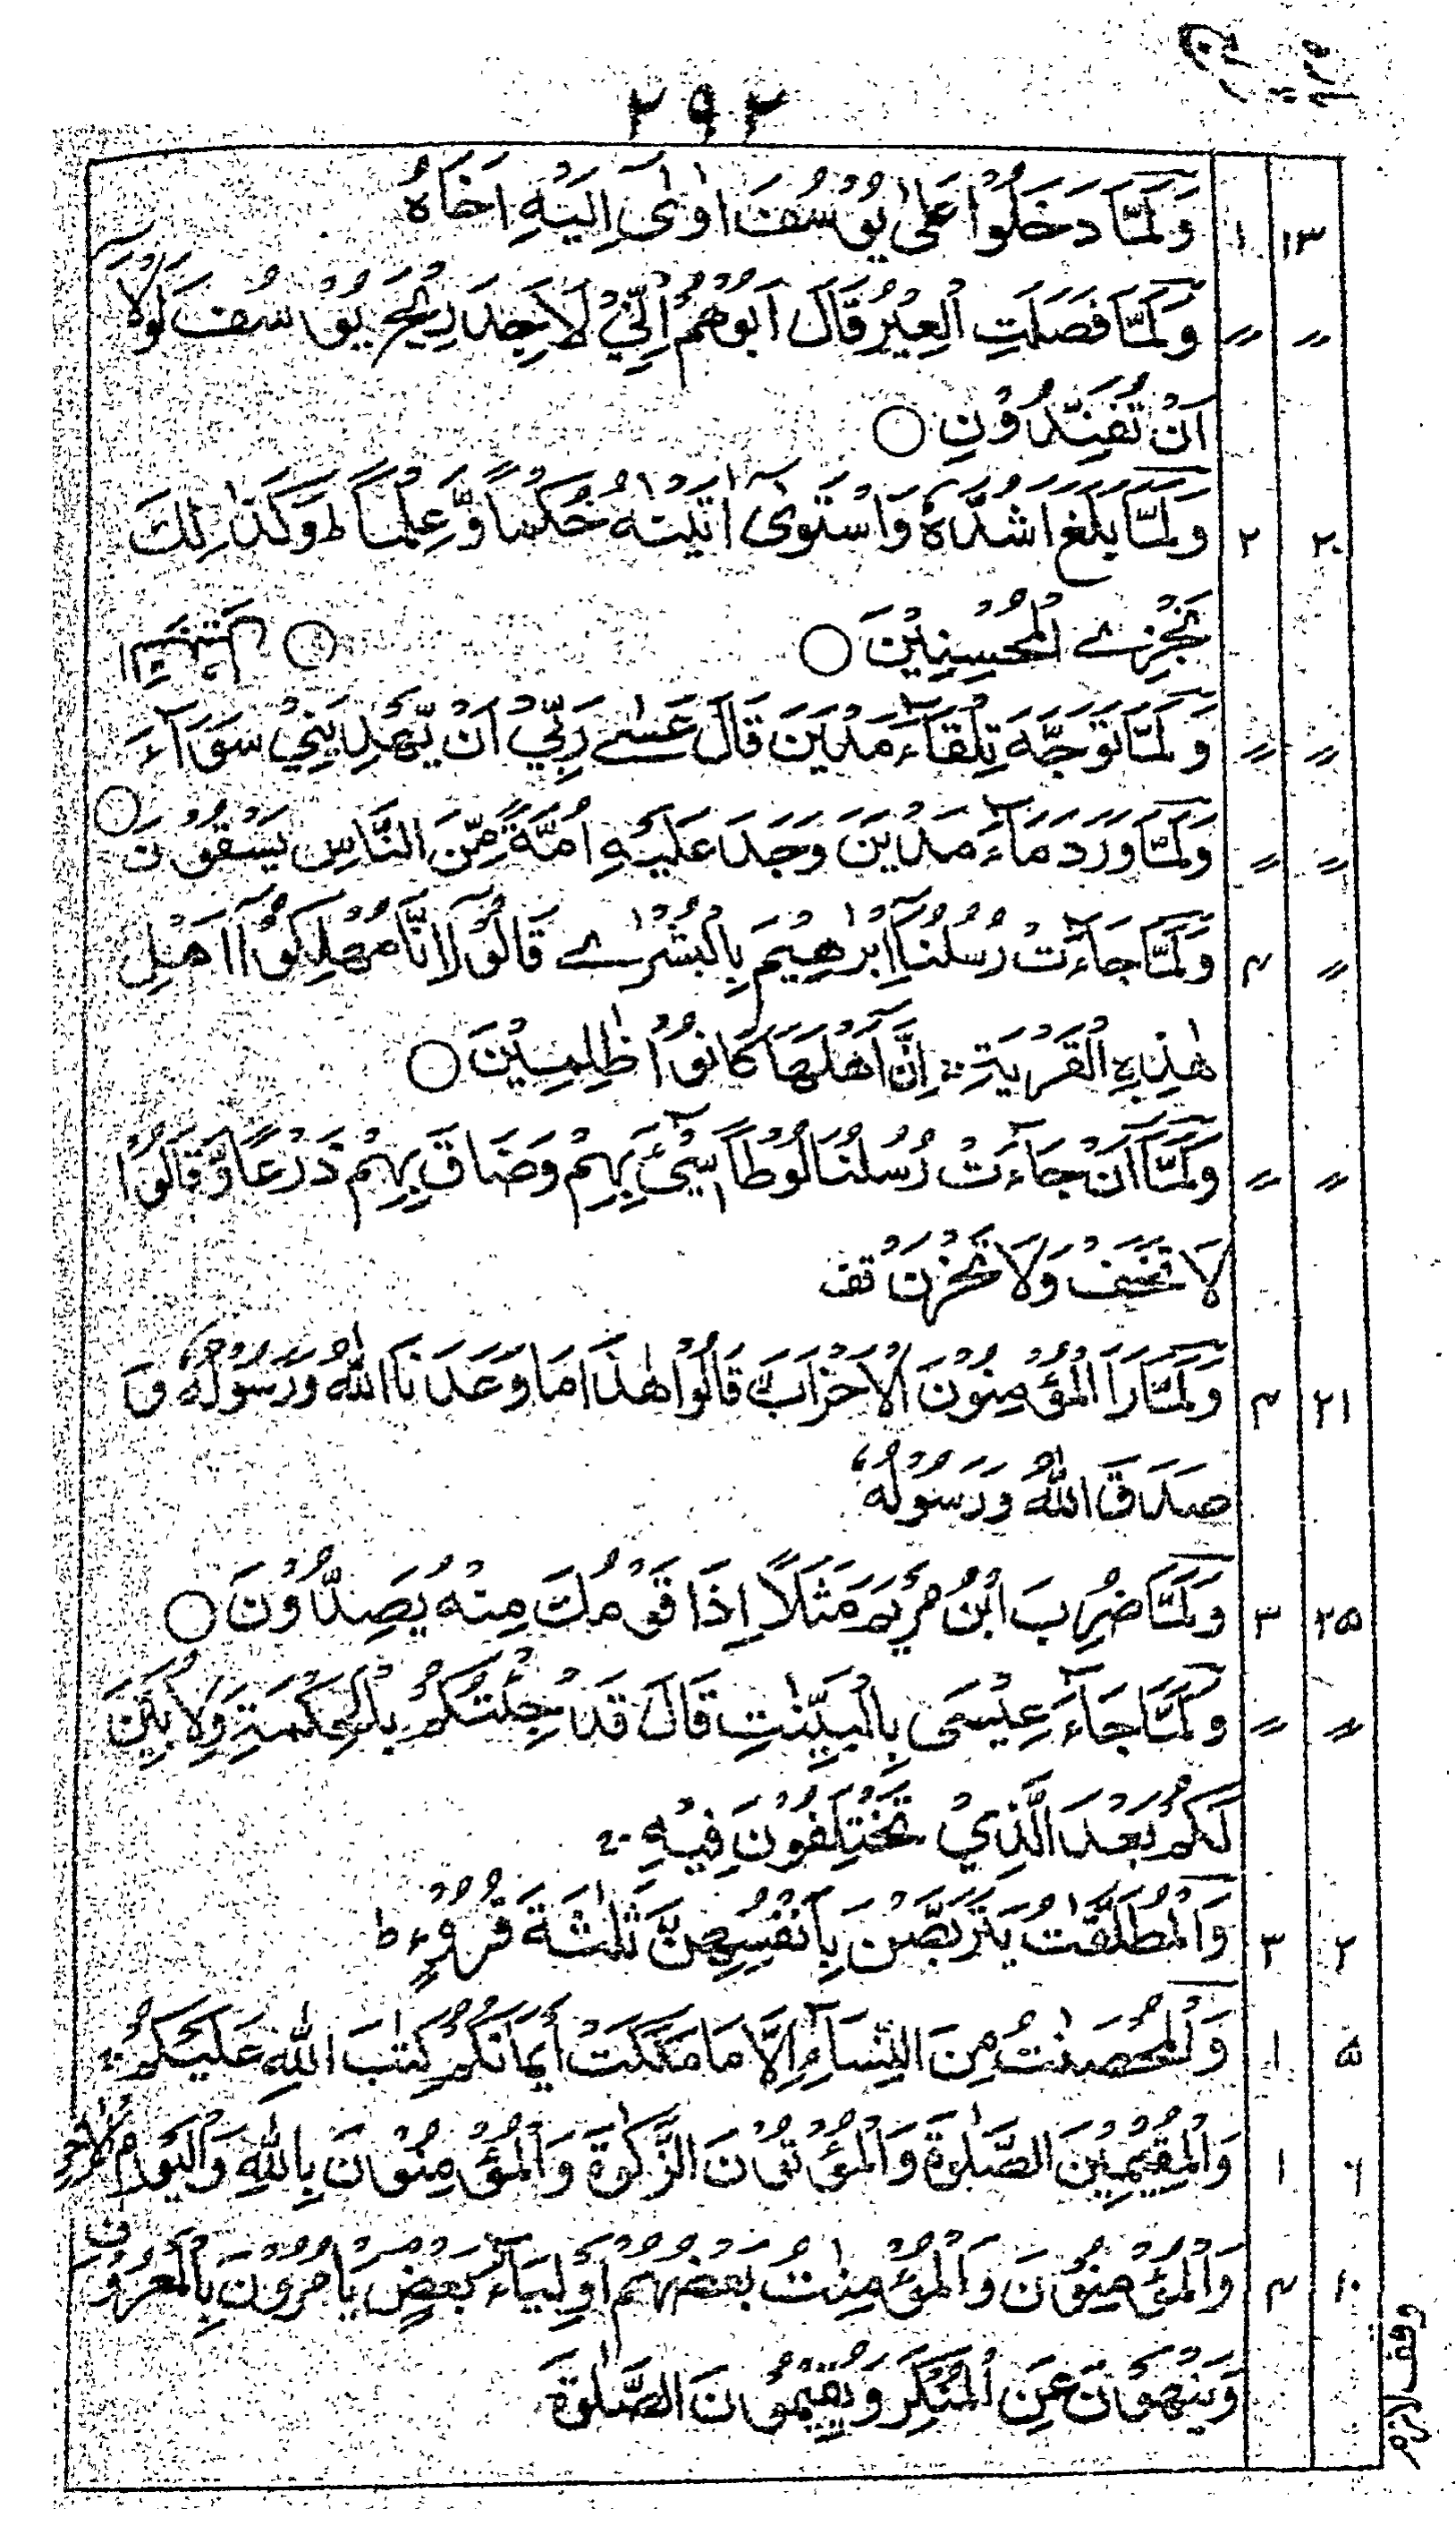 ۲۹۲
۱۳ ۱ وَلَمَّا دَخَلُوْا عَلٰى يُوْسُفَ اٰوٰٓى اِلَيْهِ اَخَاهُ
〃 〃 وَلَمَّا فَصَلَتِ الْعِيْرُ قَالَ اَبُوْهُمْ اِنِّيْ لَاَجِدُ رِيْحَ يُوْسُفَ لَوْلَاۤ
اَنْ تُفَنِّدُوْنِ ○
۲۰ ۲ وَلَمَّا بَلَغَ اَشُدَّهٗ وَاسْتَوٰىۤ اٰتَيْنٰهُ حُكْمًا وَّعِلْمًا ط وَكَذٰلِكَ
نَجْزِے الْمُحْسِنِيْنَ ○ ○
〃 〃 وَلَمَّا تَوَجَّهَ تِلْقَآءَ مَدْيَنَ قَالَ عَسٰے رَبِّيْۤ اَنْ يَّهْدِيَنِيْ سَوَآءَ
〃 〃 وَلَمَّا وَرَدَ مَآءَ مَدْيَنَ وَجَدَ عَلَيْهِ اُمَّةً مِّنَ النَّاسِ يَسْقُوْنَ ○
〃 ۴ وَلَمَّا جَآءَتْ رُسُلُنَاۤ اِبْرٰهِيْمَ بِالْبُشْرٰے قَالُوْۤا اِنَّا مُهْلِكُوْۤا اَهْلِ
هٰذِهِ الْقَرْيَةِ اِنَّ اَهْلَهَا كَانُوْا ظٰلِمِيْنَ ○
〃 〃 وَلَمَّاۤ اَنْ جَآءَتْ رُسُلُنَا لُوْطًا سِيْٓئَ بِهِمْ وَضَاقَ بِهِمْ ذَرْعًا وَّقَالُوْا
لَا تَخَفْ وَلَا تَحْزَنْ قف
۲۱ ۴ وَلَمَّا رَاَ الْمُؤْمِنُوْنَ الْاَحْزَابَ قَالُوْا هٰذَا مَا وَعَدَنَا اللّٰهُ وَرَسُوْلُهٗ وَ
صَدَقَ اللّٰهُ وَرَسُوْلُهٗ
۲۵ ۳ وَلَمَّا ضُرِبَ ابْنُ مَرْيَمَ مَثَلًا اِذَا قَوْمُكَ مِنْهُ يَصِدُّوْنَ ○
〃 〃 وَلَمَّا جَآءَ عِيْسٰى بِالْبَيِّنٰتِ قَالَ قَدْ جِئْتُكُمْ بِالْحِكْمَةِ وَلِاُبَيِّنَ
لَكُمْ بَعْضَ الَّذِيْ تَخْتَلِفُوْنَ فِيْهِ
۲ ۳ وَالْمُطَلَّقٰتُ يَتَرَبَّصْنَ بِاَنْفُسِهِنَّ ثَلٰثَةَ قُرُوْٓءٍ ط
۵ ۱ وَالْمُحْصَنٰتُ مِنَ النِّسَآءِ اِلَّا مَا مَلَكَتْ اَيْمَانُكُمْ كِتٰبَ اللّٰهِ عَلَيْكُمْ
۶ ۱ وَالْمُقِيْمِيْنَ الصَّلٰوةَ وَالْمُؤْتُوْنَ الزَّكٰوةَ وَالْمُؤْمِنُوْنَ بِاللّٰهِ وَالْيَوْمِ الْاٰخِرِ
۱۰ ۴ وَالْمُؤْمِنُوْنَ وَالْمُؤْمِنٰتُ بَعْضُهُمْ اَوْلِيَآءُ بَعْضٍ يَاْمُرُوْنَ بِالْمَعْرُوْفِ
وَيَنْهَوْنَ عَنِ الْمُنْكَرِ وَيُقِيْمُوْنَ الصَّلٰوةَ
وقف لازم